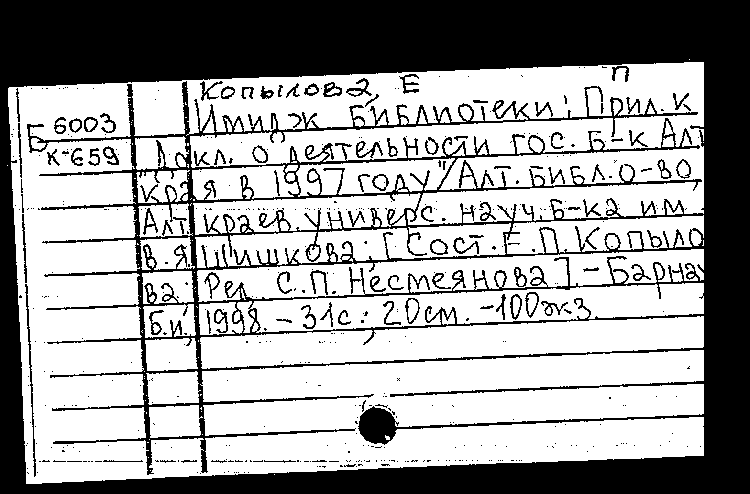 Копылова, Е П
Б 6003 Имидж библиотеки: Прил. к
К-659 "Докл. о деятельности гос. б-к Алт
края в 1997 году"/Алт. библ. о-во,
Алт краев. универс. науч. б-ка им.
В.Я Шишкова; [Сост. Е.П. Копыло
ва; Ред. С.П. Несмеянова]. - Барнау
Б.и., 1998. - 31с.; 20см. - 100экз